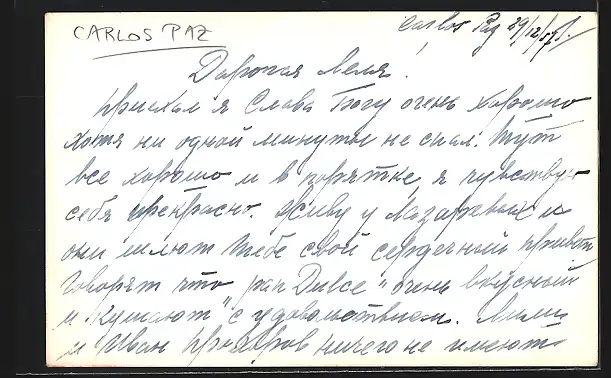 CARLOS PAZ
Carlos Paz 29/12/57
Дорогая Леля.
приехал я Слава Богу очень хорошо
хотя ни одной минуты не спал. Тут
все хорошо и в порятке, я чувствую
себя прекрасно. Живу у Лазаревых и
они шлют тебе свой сердечный привет
Говорят что "pan Dulce" очень вкусный
и кушают с удовольствием.
и Иван Прохоров ничего не имеют